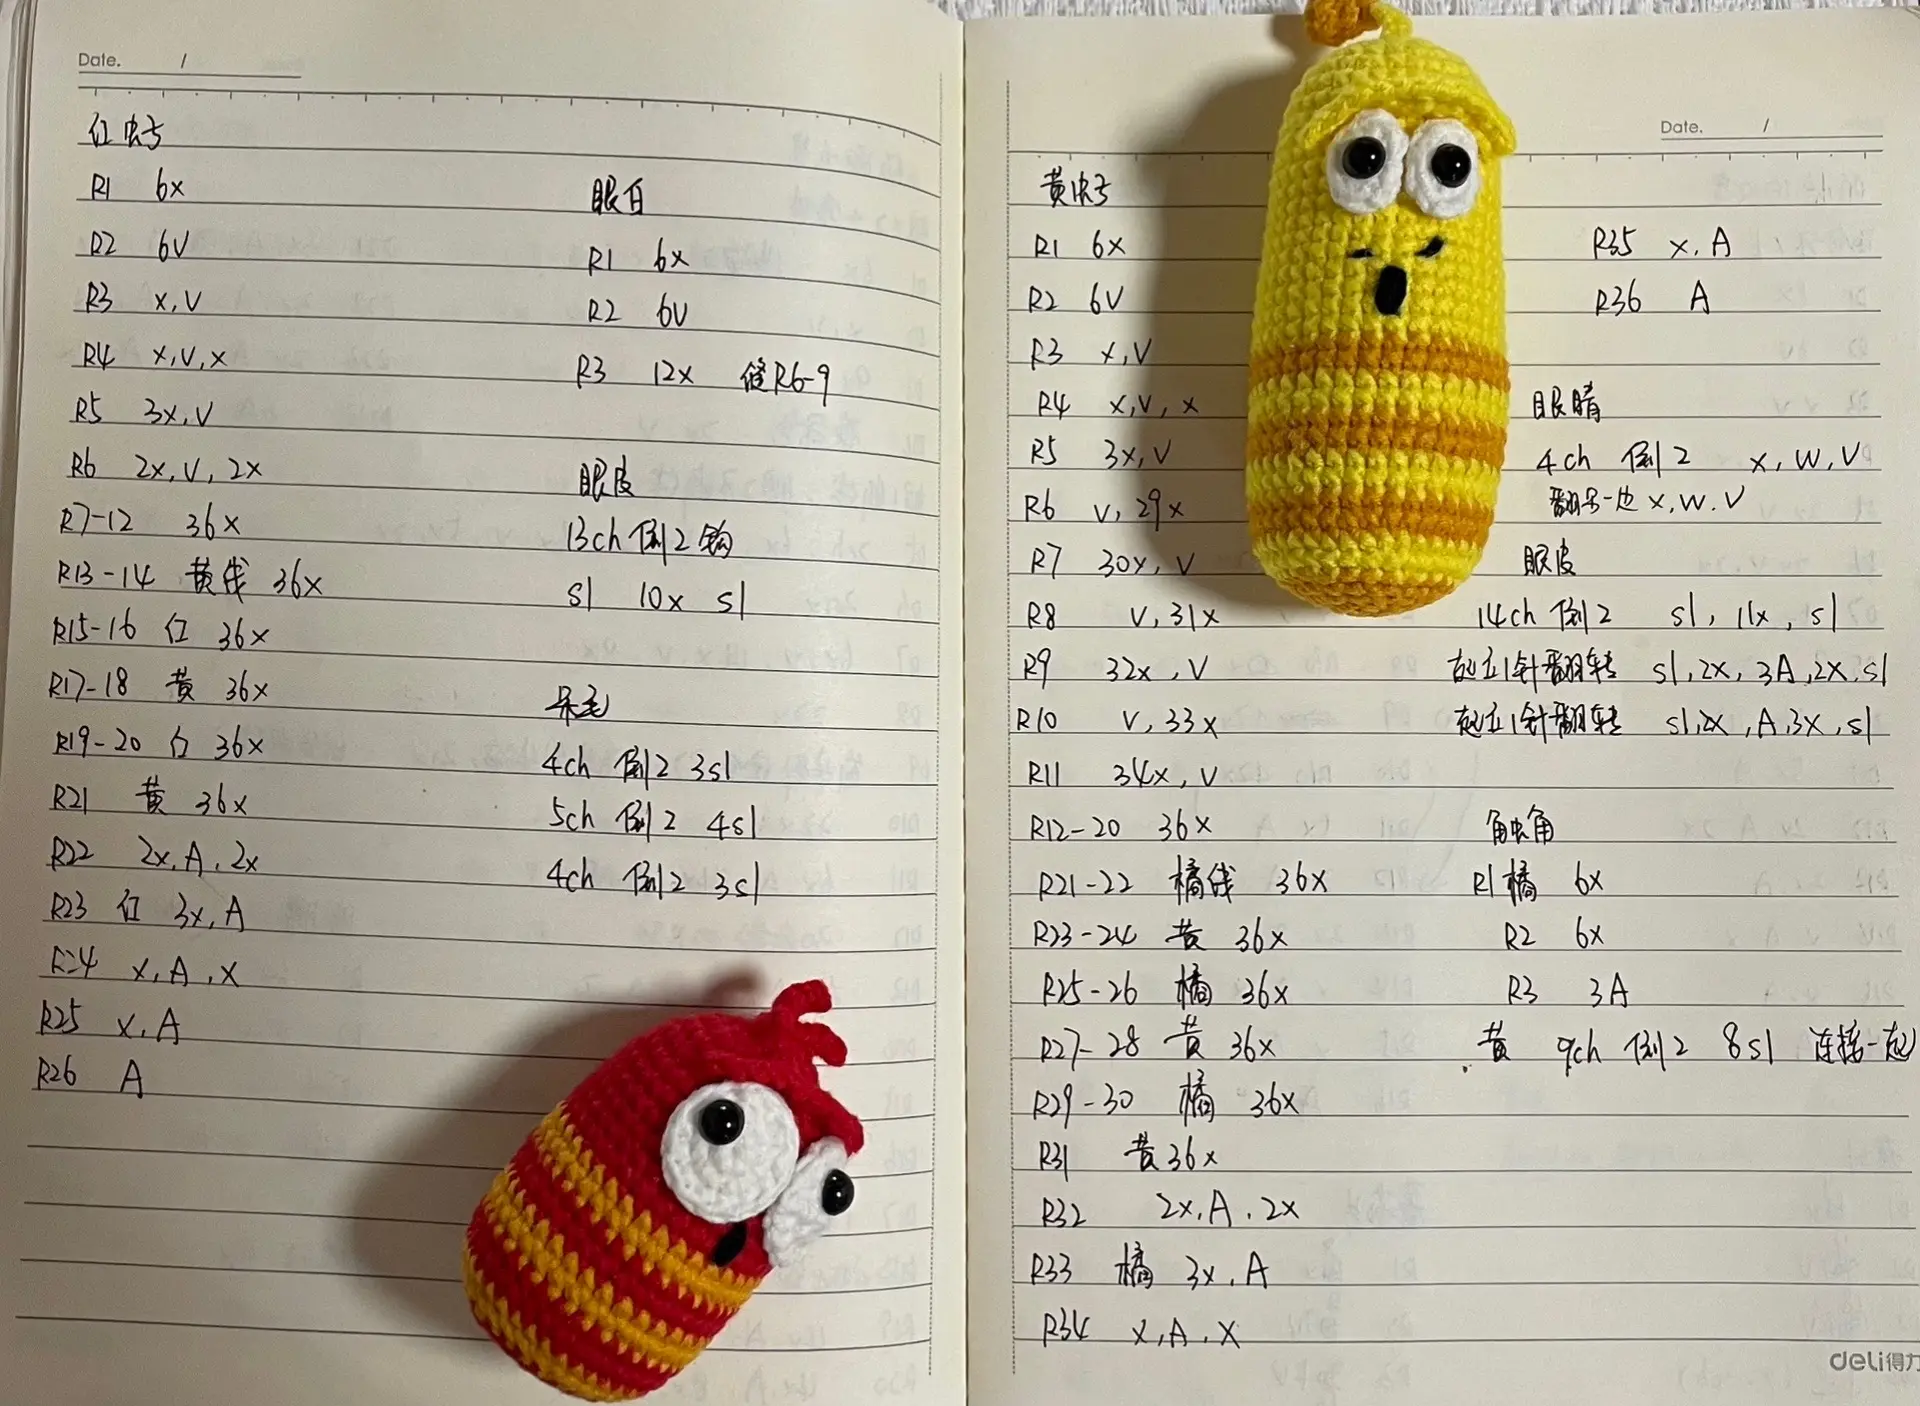 Date. /
红虫子
R1 6x
R2 6V
R3 x,V
R4 x,V,x
R5 3x,V
R6 2x,V,2x
R7-12 36x
R13-14 黄线 36x
R15-16 红 36x
R17-18 黄 36x
R19-20 红 36x
R21 黄 36x
R22 2x,A,2x
R23 红 3x,A
R24 x,A,x
R25 x,A
R26 A
眼白
R1 6x
R2 6V
R3 12x 缝R6-9
眼皮
13ch 倒2钩
sl 10x sl
呆毛
4ch 倒2 3sl
5ch 倒2 4sl
4ch 倒2 3sl
Date. /
黄虫子
R1 6x
R2 6V
R3 x,V
R4 x,V,x
R5 3x,V
R6 V,29x
R7 30x,V
R8 V,31x
R9 32x,V
R10 V,33x
R11 34x,V
R12-20 36x
R21-22 橘线 36x
R23-24 黄 36x
R25-26 橘 36x
R27-28 黄 36x
R29-30 橘 36x
R31 黄36x
R32 2x,A,2x
R33 橘 3x,A
R34 x,A,x
R35 x,A
R36 A
眼睛
4ch 倒2 x,W,V
翻另一边 x,W,V
眼皮
14ch 倒2 sl,11x,sl
起立1针翻转 sl,2x,3A,2x,sl
起立1针翻转 sl,2x,A,3x,sl
触角
R1橘 6x
R2 6x
R3 3A
黄 9ch 倒2 8sl 连接一起
deli得力